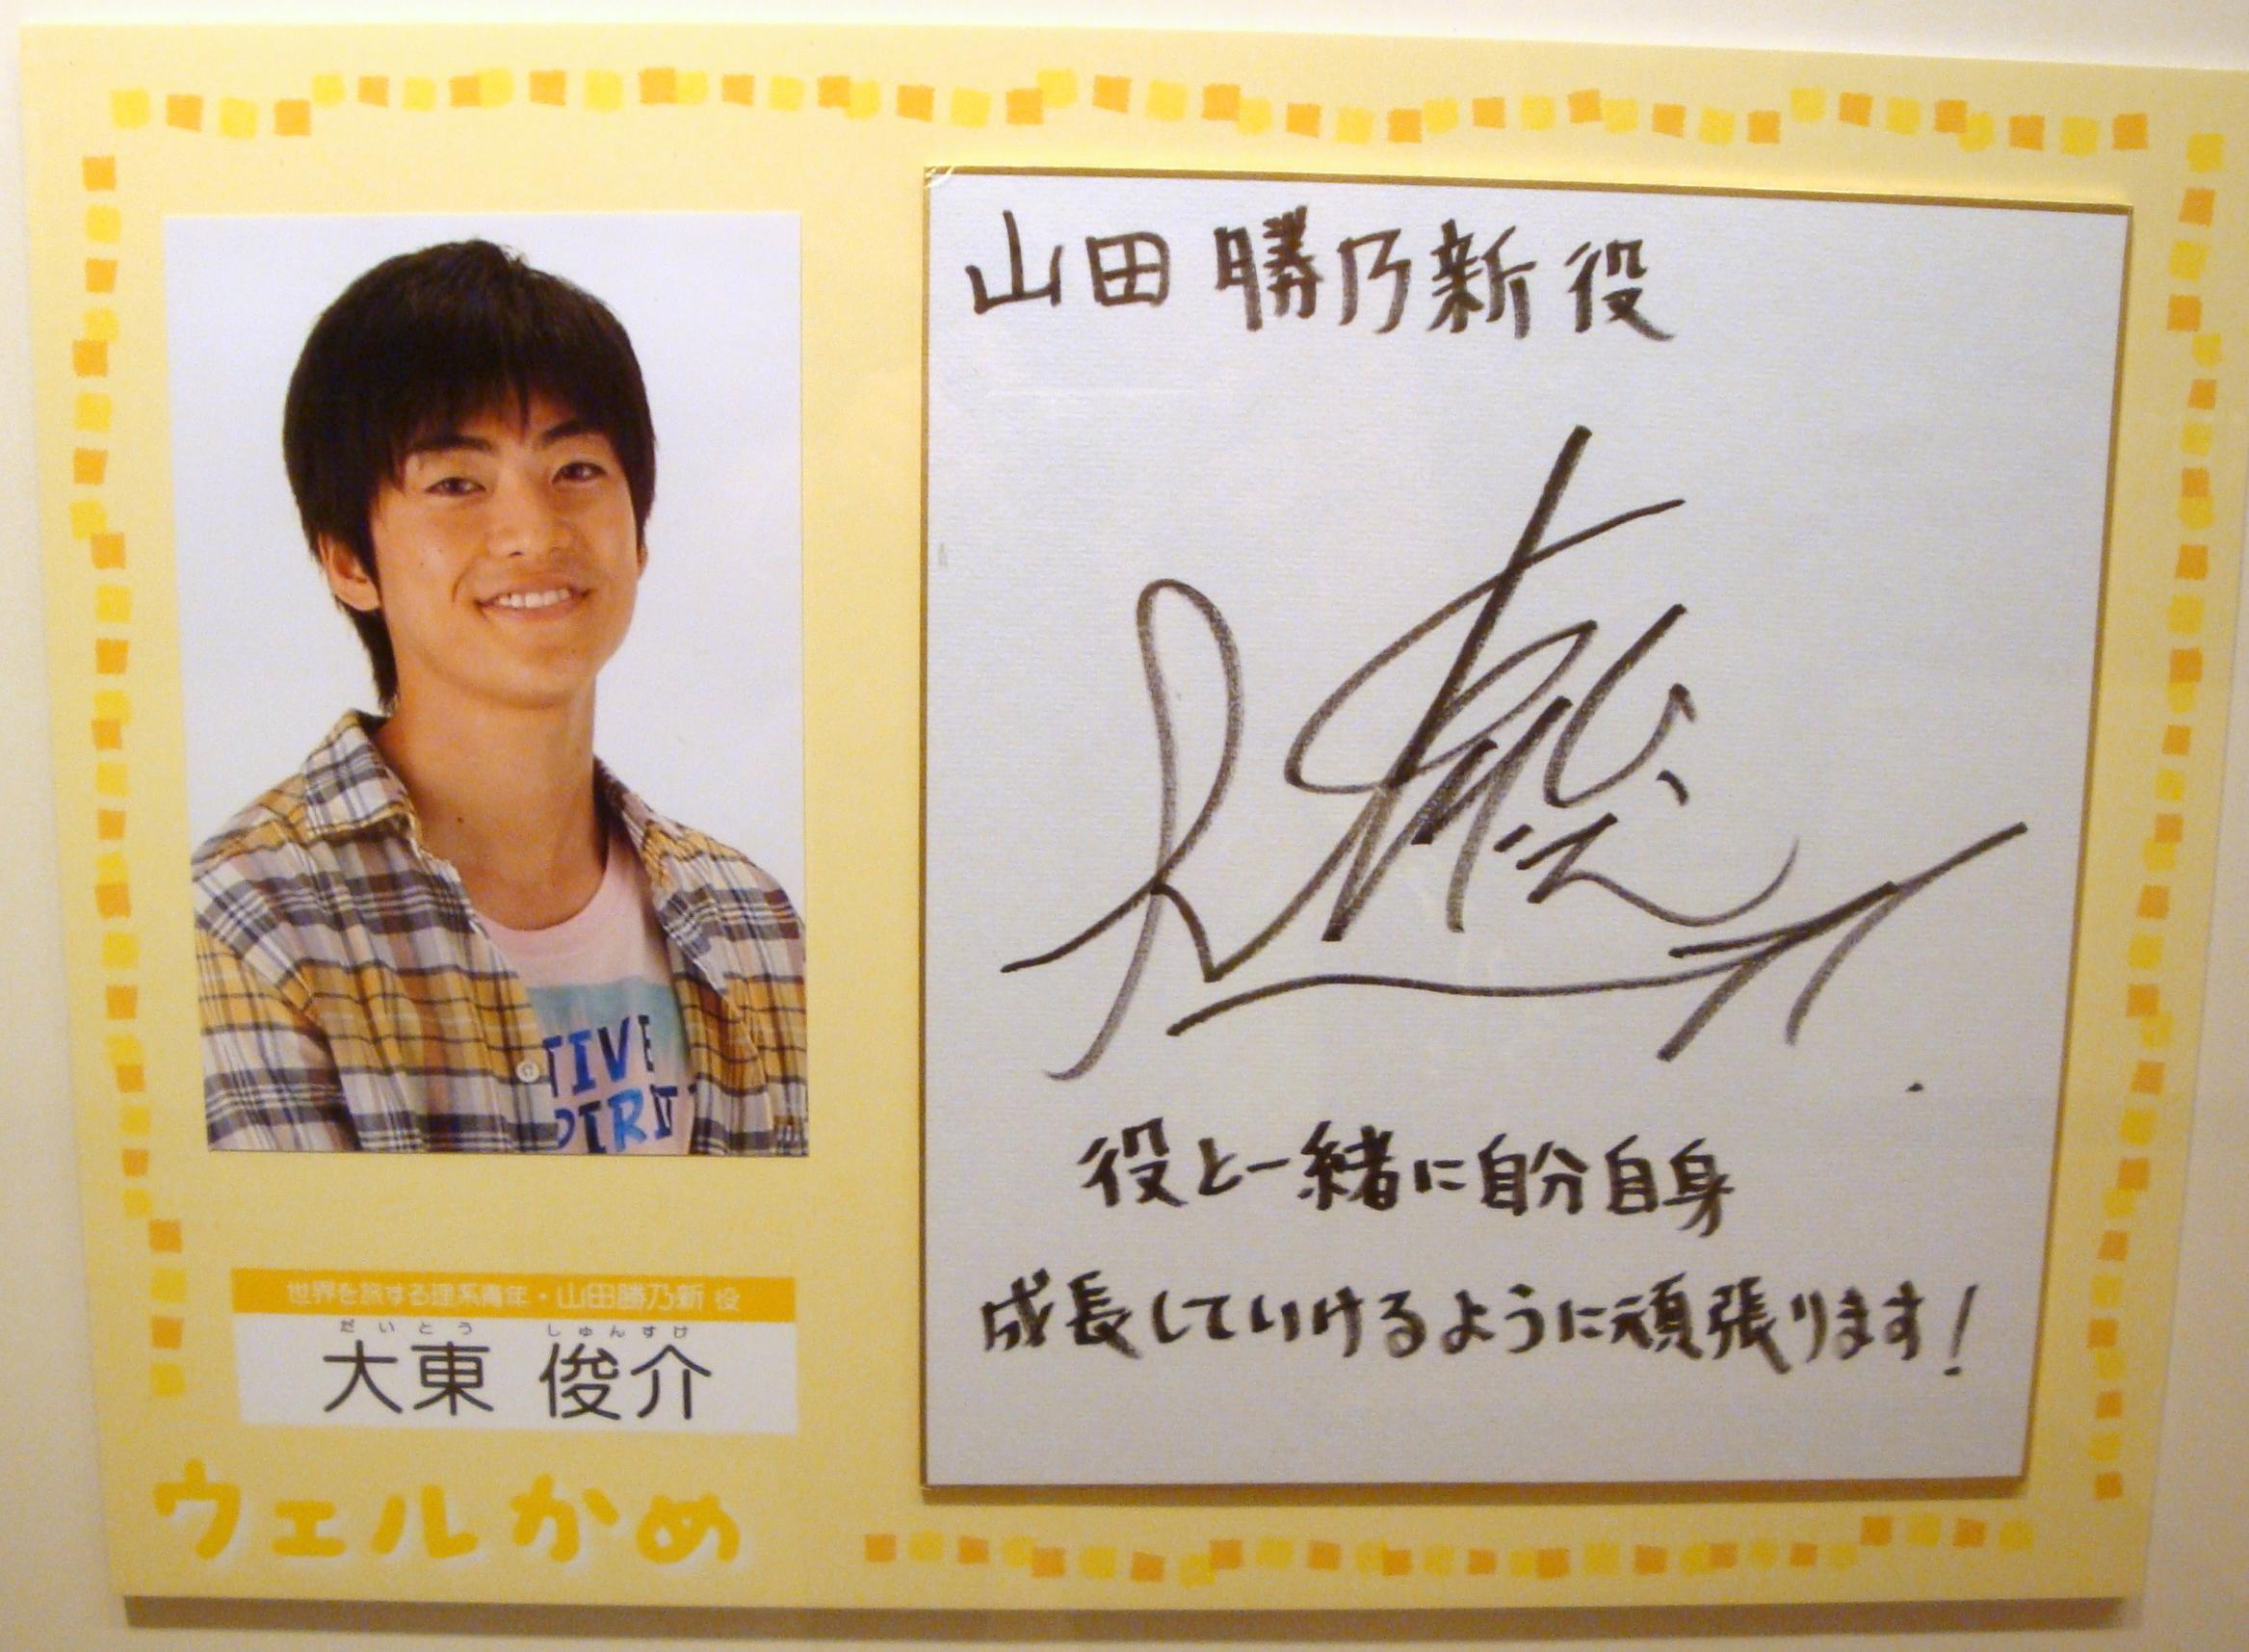 山田 勝乃新 役
役と一緒に自分自身
成長していけるように頑張ります!
TIVE
PIRIT
世界を旅する理系青年・山田勝乃新 役
だいとう しゅんすけ
大東 俊介
ウェルかめ